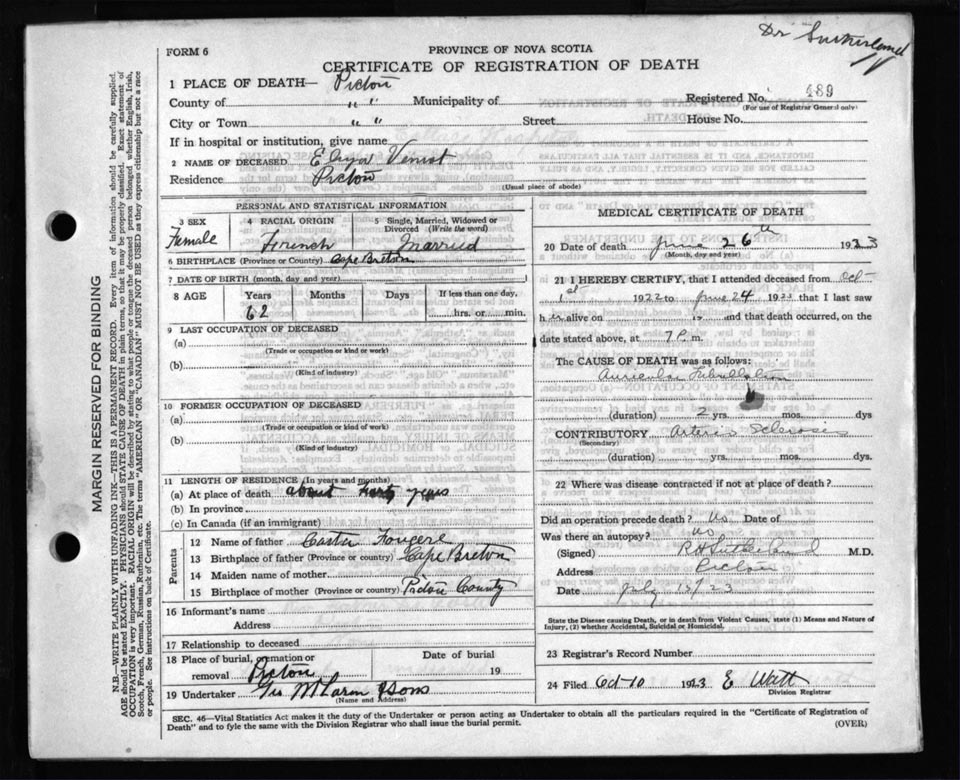 Dr Sutherland
FORM 6
PROVINCE OF NOVA SCOTIA
CERTIFICATE OF REGISTRATION OF DEATH
1 PLACE OF DEATH— Pictou
County of " " Municipality of Registered No. 489
(For use of Registrar General only)
City or Town " " Street House No.
If in hospital or institution, give name
2 NAME OF DECEASED Venist
Residence Pictou
(Usual place of abode)
PERSONAL AND STATISTICAL INFORMATION
3 SEX Female
4 RACIAL ORIGIN French
5 Single, Married, Widowed or Divorced (Write the word) Married
6 BIRTHPLACE (Province or Country) Cape Breton
7 DATE OF BIRTH (month, day and year)
8 AGE Years 62 Months Days If less than one day, hrs. or min.
9 LAST OCCUPATION OF DECEASED
(a)
(Trade or occupation or kind or work)
(b)
(Kind of industry)
10 FORMER OCCUPATION OF DECEASED
(a)
(Trade or occupation or kind of work)
(b)
(Kind of industry)
11 LENGTH OF RESIDENCE (In years and months)
(a) At place of death about years
(b) In province
(c) In Canada (if an immigrant)
Parents
12 Name of father Fougere
13 Birthplace of father (Province or country) Cape Breton
14 Maiden name of mother
15 Birthplace of mother (Province or country) Pictou County
16 Informant's name
Address
17 Relationship to deceased
18 Place of burial, cremation or removal Pictou Date of burial 19
19 Undertaker McLaren & Sons
(Name and Address)
MEDICAL CERTIFICATE OF DEATH
20 Date of death June 26th 1923
(Month, day and year)
21 I HEREBY CERTIFY, that I attended deceased from Oct
1st 1922 to June 24 1923 that I last saw
her alive on 19 and that death occurred, on
date stated above, at 7 P. m.
The CAUSE OF DEATH was as follows:
Auricular Fibrillation
(duration) 2 yrs. mos. dys
CONTRIBUTORY Arterio Sclerosis
(Secondary)
(duration) yrs. mos. dys
22 Where was disease contracted if not at place of death?
Did an operation precede death? No Date of
Was there an autopsy? no
(Signed) R H Sutherland M.D.
Address Pictou
Date July 13/23
State the Disease causing Death, or in death from Violent Causes, state (1) Means and Nature of Injury, (2) whether Accidental, Suicidal or Homicidal.
23 Registrar's Record Number
24 Filed Oct 10 1923 E Watt
Division Registrar
SEC. 46—Vital Statistics Act makes it the duty of the Undertaker or person acting as Undertaker to obtain all the particulars required in the "Certificate of Registration of
Death" and to fyle the same with the Division Registrar who shall issue the burial permit.
(OVER)
MARGIN RESERVED FOR BINDING
N.B.—WRITE PLAINLY WITH UNFADING INK—THIS IS A PERMANENT RECORD. Every item of information should be carefully supplied.
AGE should be stated EXACTLY. PHYSICIANS should STATE CAUSE OF DEATH in plain terms, so that it may be properly classified. Exact statement of
OCCUPATION is very important. RACIAL ORIGIN will be described by stating to what people or tongue the deceased person belonged whether English, Irish,
Scotch, French, German, Russian, Ruthenian, etc. The terms "AMERICAN" OR "CANADIAN" MUST NOT BE USED as they express citizenship but not a race
or people. See instructions on back of Certificate.